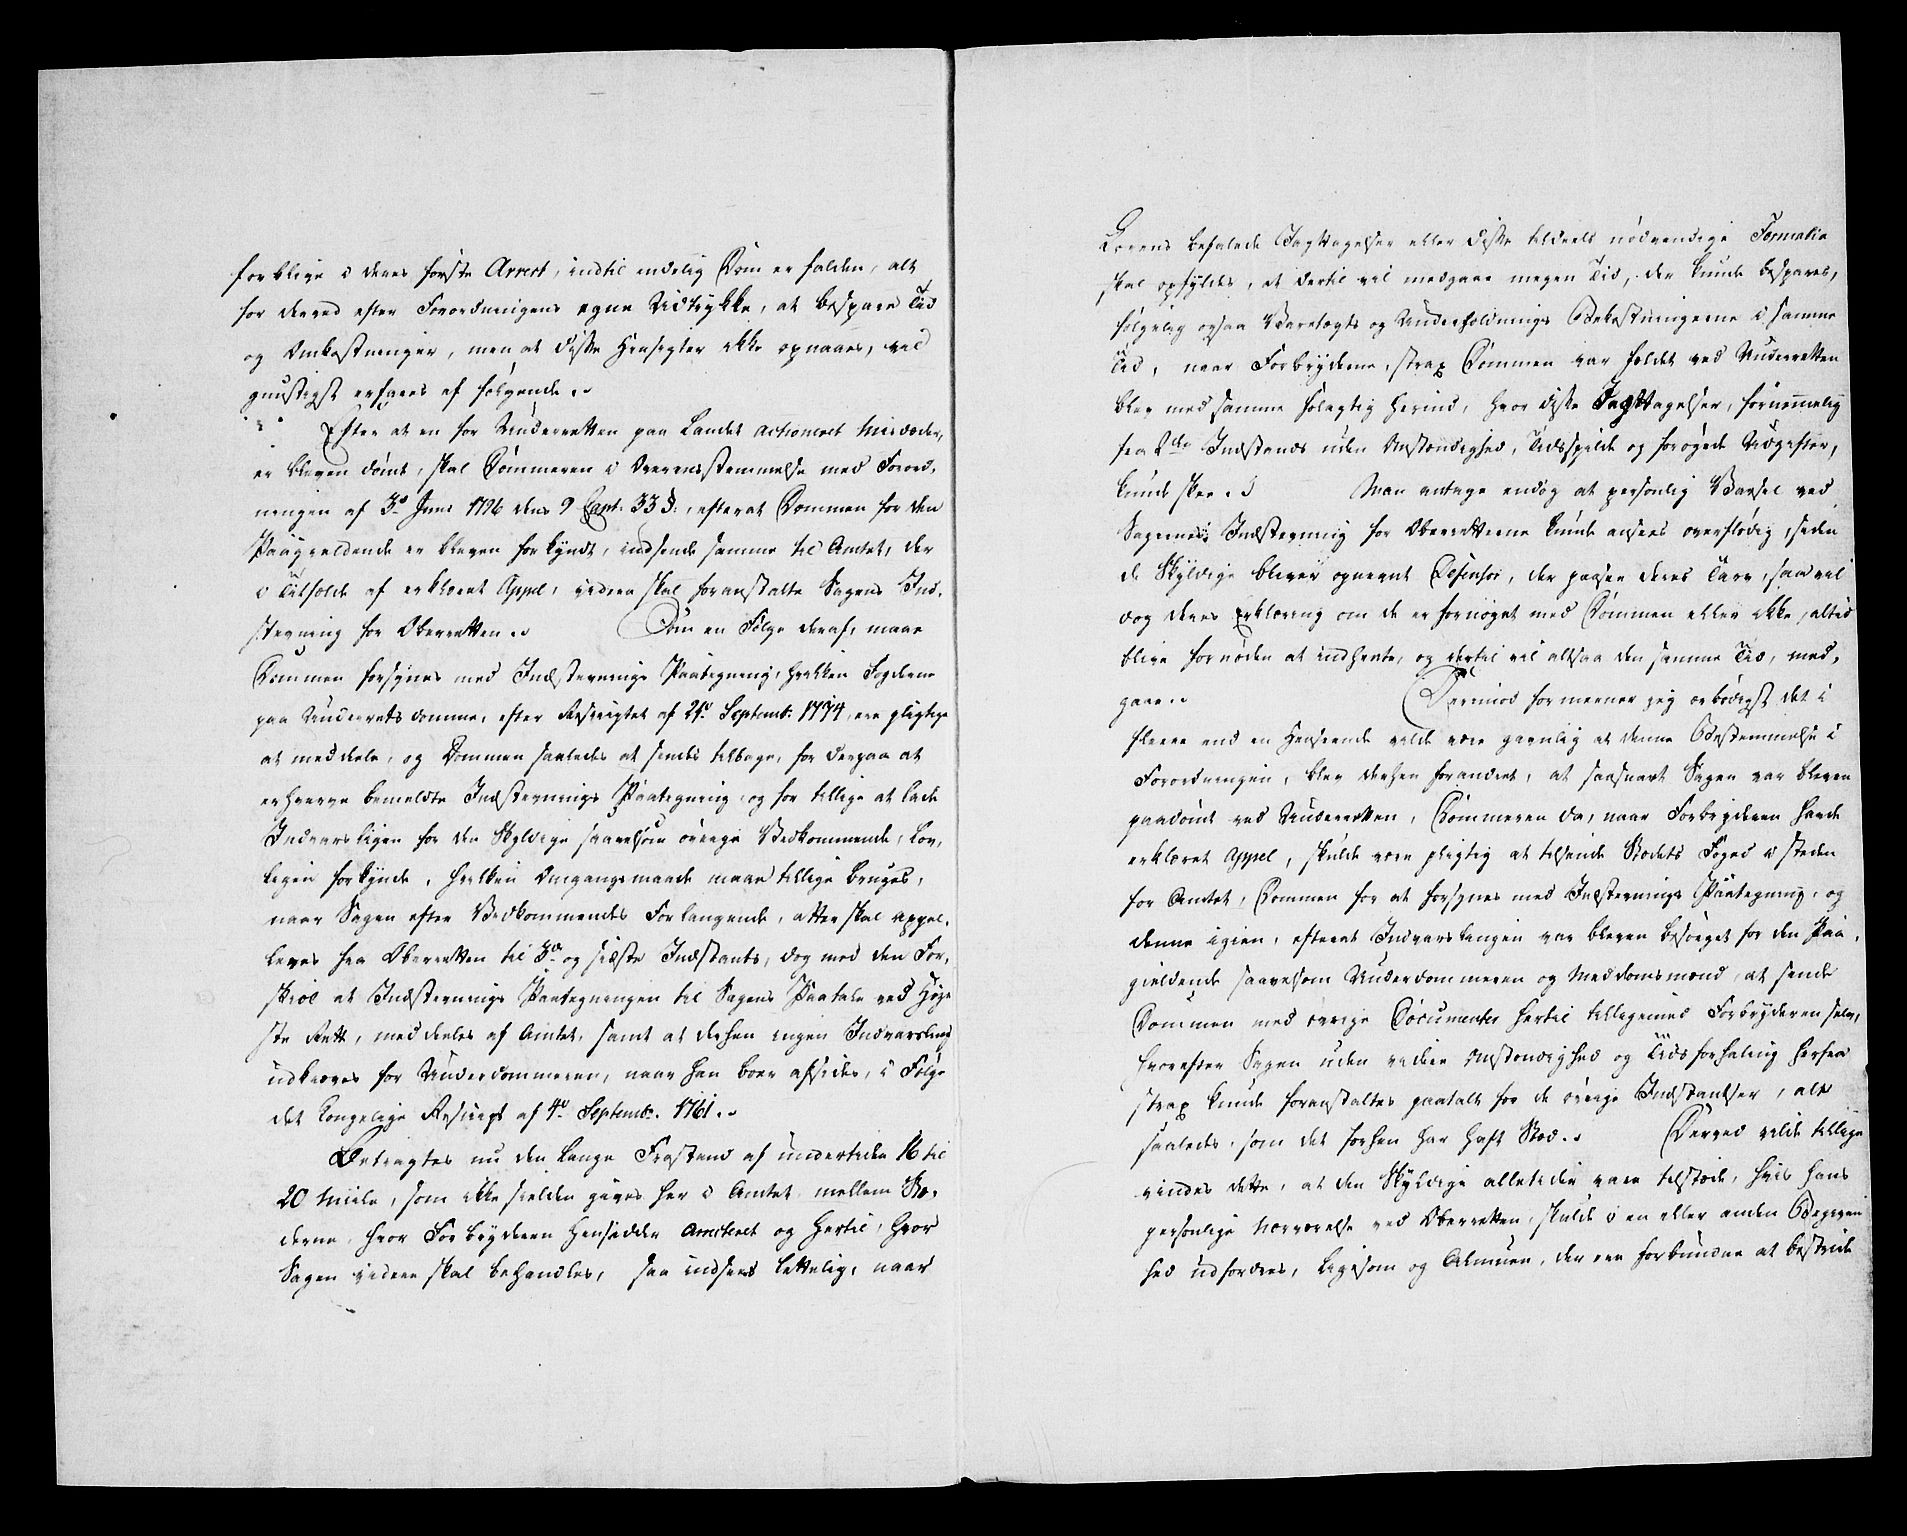 forblive i deres første Arrest, indtil endelig Dom er falden, alt
for derved efter Forordningens egne Udtrykke, at bespare Tid
og Omkostninger, men at disse Hensigter ikke opnaaes, vil
gunstigst erfares af følgende.
Efter at en for Underretten paa Landet actioneret Misdæder,
er bleven dømt, skal Dommeren i Overensstemmelse med Forord,
ningen af 3die Juni 1796 dens 9 Capt. 33 §:, efterat Dommen for den
Paagieldende er bleven forkyndt, indsende samme til Amtet, der
i Tilfælde af erklæret Appel, videre skal foranstalte Sagens Ind,
stevning for Oberretten. Som en Følge deraf, maae
Dommen forsynes med Indstevnings Paategning, hvilken Fogderne
paa Underrets domme, efter Rescriptet af 21de Septemb: 1774, ere pligtige
at meddele, og Dommen saaledes at sendes tilbage, for derpaa at
erhverve bemeldte Indstevnings Paategning, og for tillige at lade
Indvarsligen for den Skyldige saavelsom øvrige Vedkommende, lov,
ligen forkynde, hvilken Omgangsmaade maae tillige bruges,
naar Sagen efter Vedkommendes Forlangende, atter skal appel,
leres fra Oberretten til 3die og sidste Indstants, dog med den For,
skiel at Indstevnings Paategningen til Sagens Paatale ved Høye
ste Rett, meddeeles af Amtet, samt at derhen ingen Indvarsling
udkræves for Underdommeren, naar han boer afsides, i Følge
det Kongelige Rescript af 4de Septemb: 1761.
Betragtes nu den lange Frastand af undertiden 16 til
20 Miile, som ikke sielden gives her i Amtet mellem Ste,
derne, hvor Forbryderen hensidder arresteret og hertil, hvor
Sagen videre skal behandles, saa indsees lettelig, naar
Lovens befalede Iagttagelser eller disse tildeels nødvendige Formalia
skal opfyldes, at dertil vil medgaae megen Tid, der kunde bespares,
følgelig ogsaa Varetægts og Underholdnings Bekostningerne i samme
Tid, naar Forbryderne, strax Dommen var fældet ved Underretten
blev med samme følagtig herind, hvor disse Iagttagelser, fornemmelig
fra 2den Indstands uden Omstændighed, Tidsspilde og forøgede Udgifter,
kunde skee. Man antage endog at personlig Varsel ved
Sagernes Indstevning for Oberretterne kunde ansees overflødig, siden
de Skyldige bliver opnevnt Defensor, der passer deres Tarv, saa vil
dog deres Erklæring om de er fornøyet med Dommen eller ikke, altid
blive fornøden at indhente, og dertil vil altsaa den samme Tid, med,
gaae. Derimod formeener jeg ærbødigst det i
fleere end en Henseende vilde være gavnlig at denne Bestemmelse i
Forordningen, blev derhen forandret, at saasnart Sagen var bleven
paadømt ved Underretten, Dommeren da, naar Forbryderen havde
erklæret Appel, skulde være pligtig at tilsende Stedets Foged i steden
for Amtet, Dommen for at forsynes med Indstevnings Paategning, og
denne igien, efterat Indvarslingen var bleven besørget for den Paa,
gieldende saavelsom Underdommeren og Meddomsmænd, at sende
Dommen med øvrige Documenter hertil tilligemed Forbryderen selv,
hvorefter Sagen uden videre Omstændighed og Tidsforhaling herfra
strax kunde foranstaltes paatalt for de øvrige Indstantser, alt
saaledes, som det forhen har haft Sted. Derved vilde tillige
vindes dette, at den Skyldige alletider vare tilstæde, hvis hans
personlige Nærværelse ved Oberretten, skulde i en eller anden Begiven
hed udfordres, ligesom og Almuen, der ere forbundne at bestride